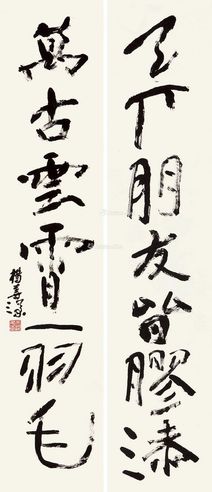 天下朋友皆膠漆
萬古雲霄一羽毛
楊善深